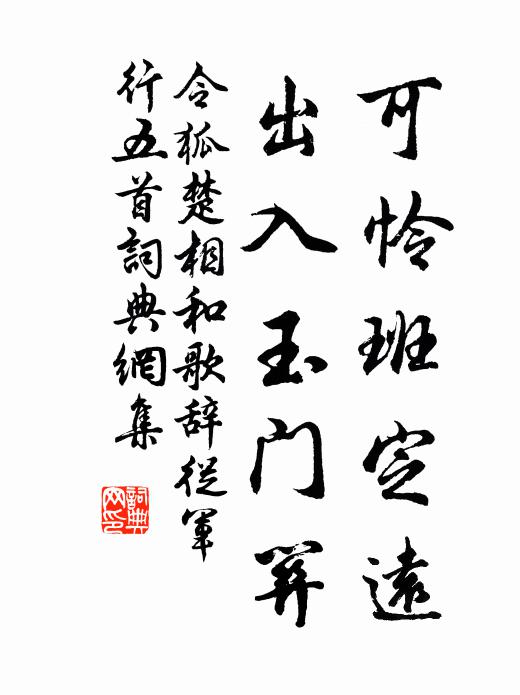 可怜班定遠
出入玉门關
令狐楚相和歌辞從軍
行五首詞典網集
詞典网印